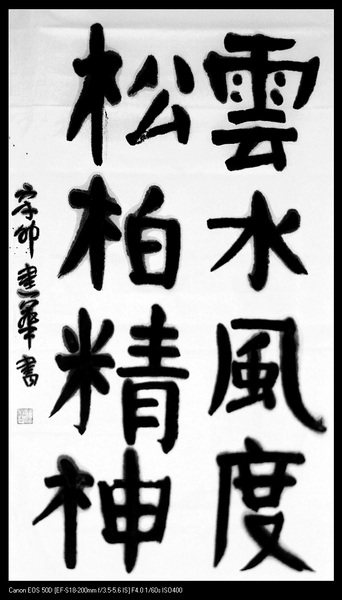 雲水風度
松柏精神
辛卯華書
Canon EOS 50D [EF-S18-200mm f/3.5-5.6 IS] F4.0 1/60s ISO400